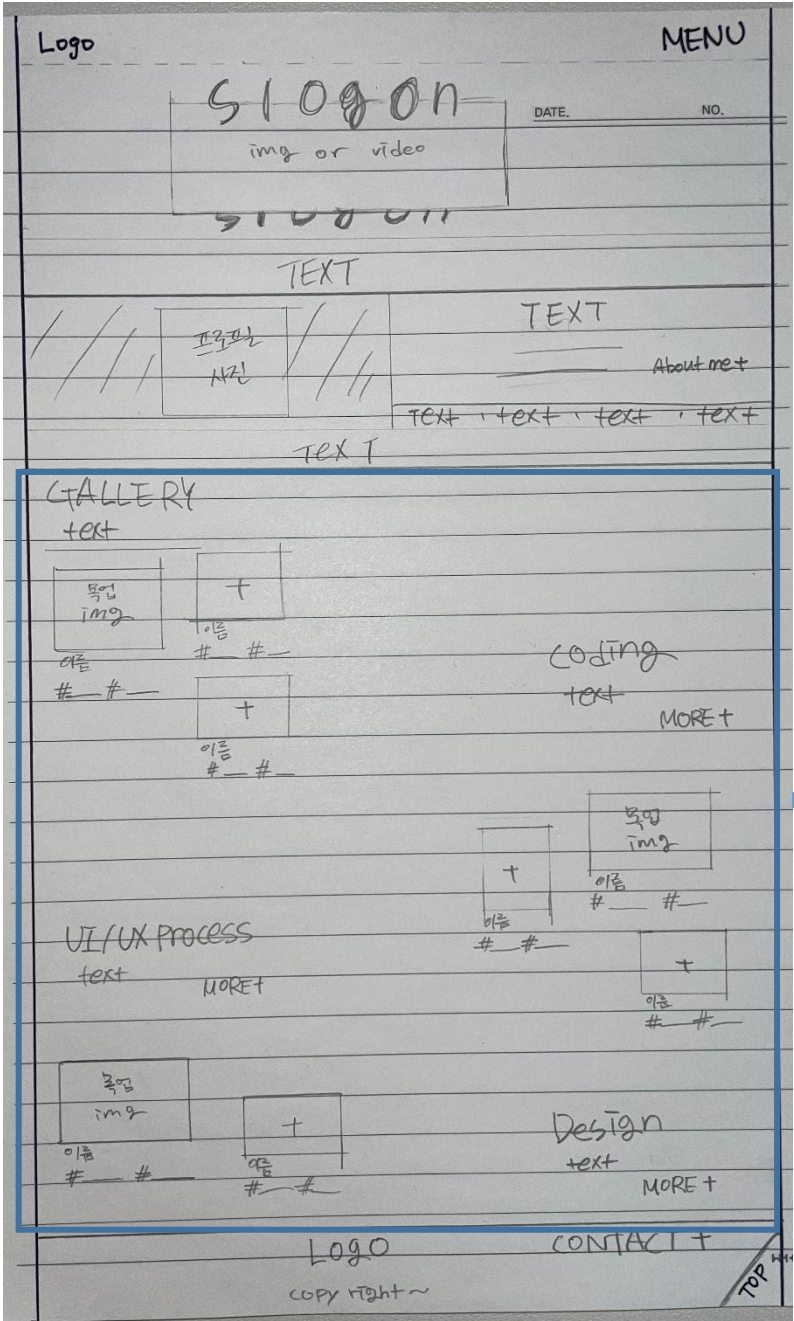 Logo
MENU
slogon
DATE.
NO.
img or video
TEXT
프로필
사진
TEXT
About me+
Text · text · text · text
TEXT
GALLERY
text
목업
img
이름
#__ #__
+
이름
#__ #__
+
이름
#__ #__
coding
text
MORE+
목업
img
이름
#__ #__
+
이름
#__ #__
+
이름
#__ #__
UI/UX process
text
MORE+
목업
img
이름
#__ #__
+
이름
#__ #__
Design
text
MORE+
LOGO
CONTACT+
copy right~
TOP